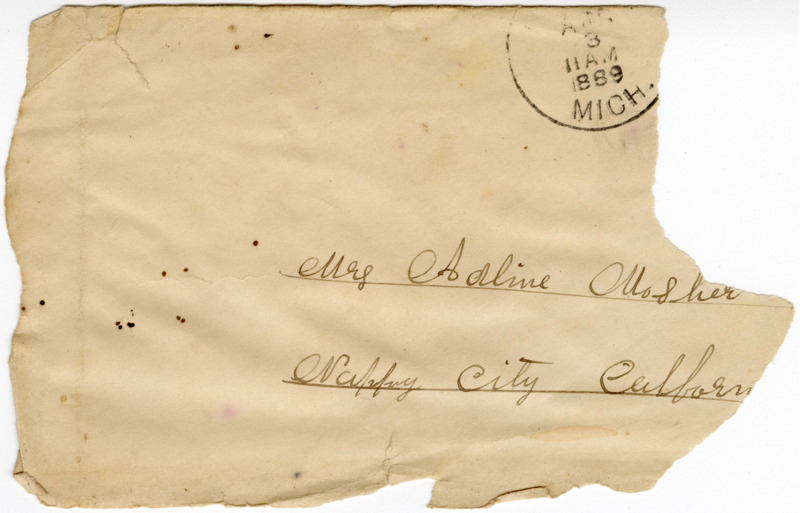 3
11 AM
1889
MICH.
Mrs Adline Mosher
Nappy City Californ